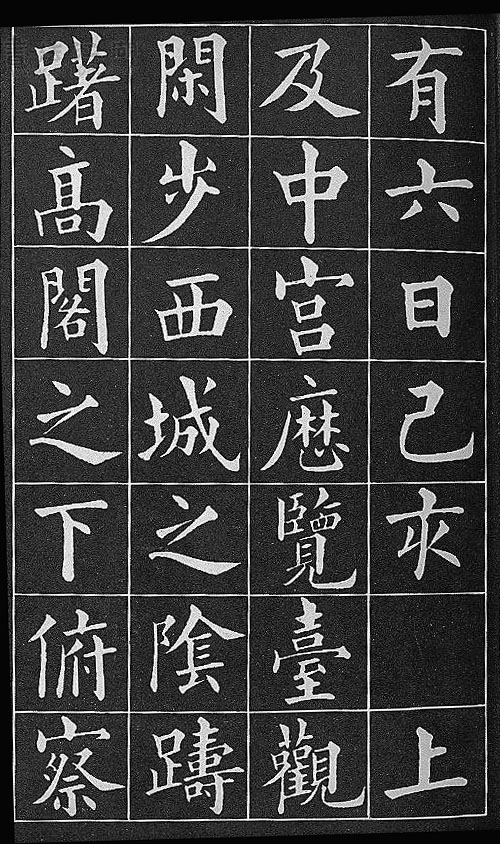 有六日己亥　上
及中宮歷覽臺觀
閑步西城之陰躊
躇高閣之下俯察